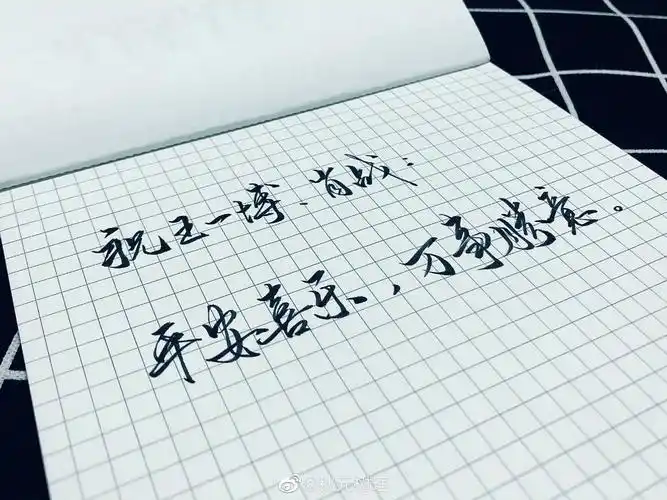 祝王一博、肖战：
平安喜乐、万事胜意。